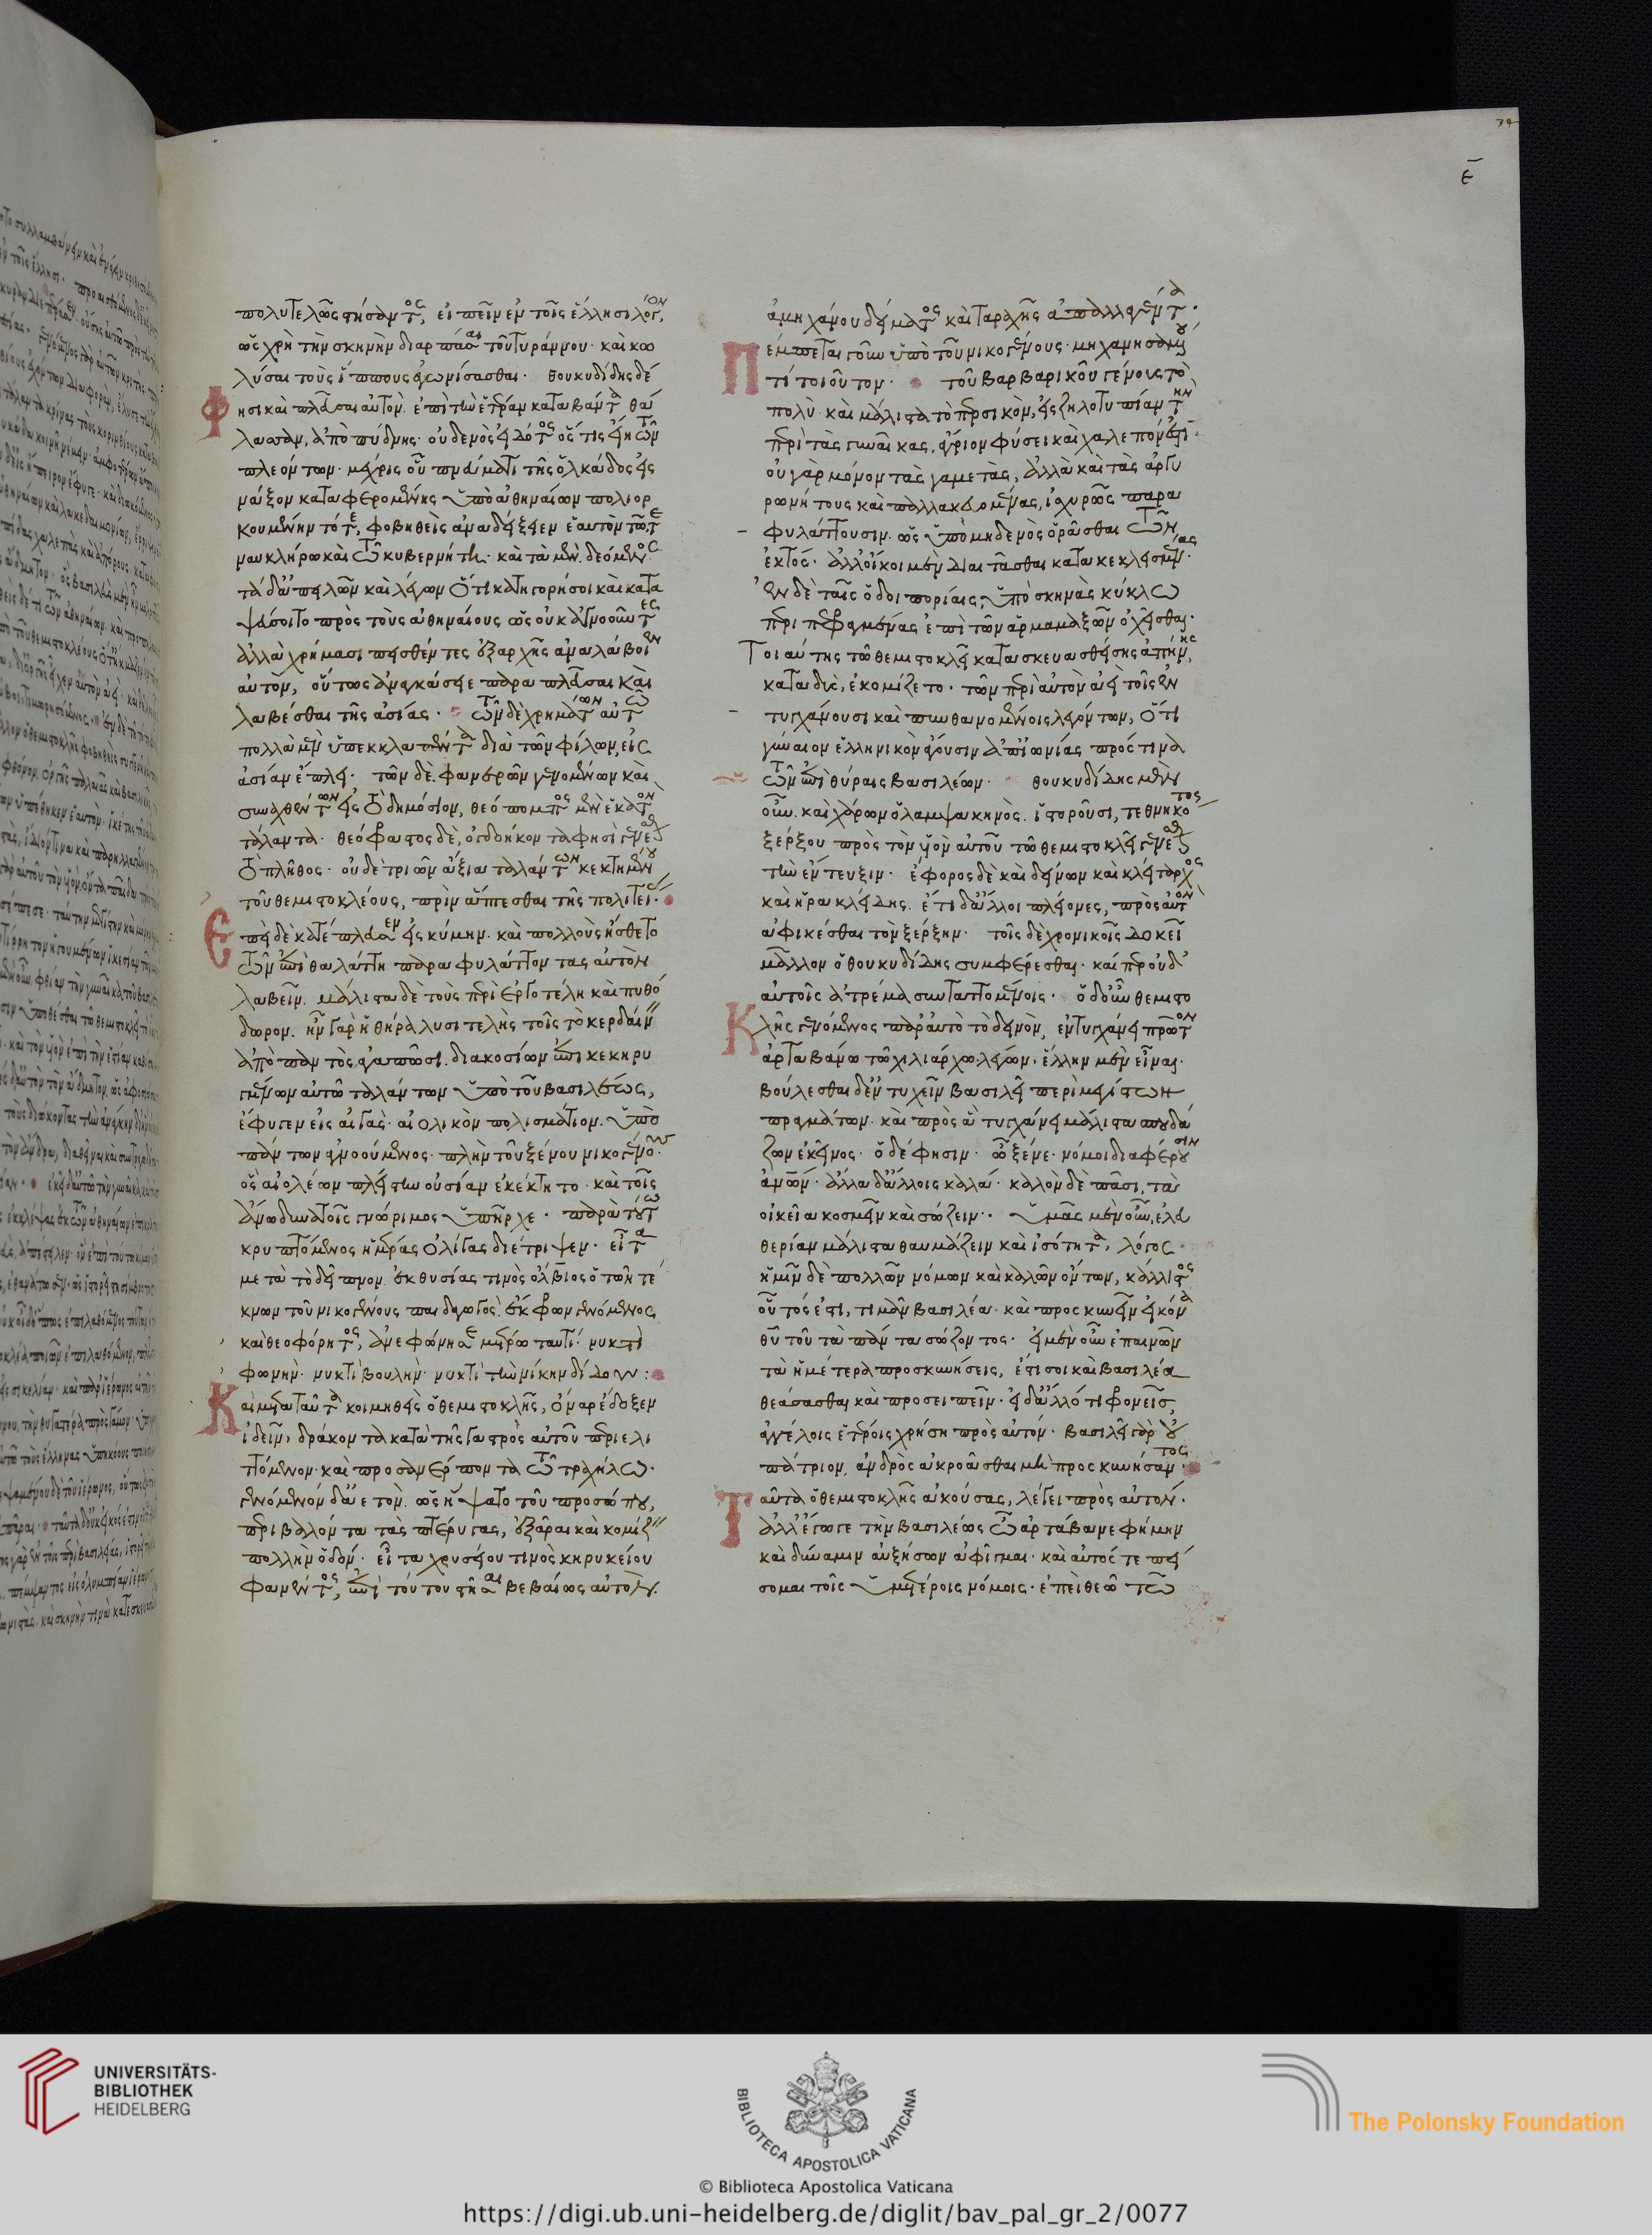 34
ε
πολυτελῶς στήσαντος, εἰπεῖν ἐν τοῖς ἕλλησι λόγον,
ὡς χρὴ τὴν σκηνὴν διαρπάσαι τοῦ τυράννου· καὶ κω
λῦσαι τοὺς ἵππους ἀγωνίσασθαι· θουκυδίδης δέ
φησι καὶ πλεῦσαι αὐτὸν· ἐπὶ τὴν ἑτέραν καταβάντα θά
λασσαν, ἀπὸ πύδνης· οὐδενὸς εἰδότος ὅστις εἴη τῶν
πλεόντων· μέχρις οὗ πνεύματι τῆς ὁλκάδος εἰς
νάξον καταφερομένης ὑπὸ ἀθηναίων πολιορ
κουμένην τότε, φοβηθεὶς ἀναδείξειεν ἑαυτὸν τῶ, τε
ναυκλήρω καὶ τῶ κυβερνήτη· καὶ τὰ μὲν δεόμενος
τὰ δ' ἀπειλῶν καὶ λέγων ὅτι κατηγορήσοι καὶ κατα
ψεύσοιτο πρὸς τοὺς ἀθηναίους ὡς οὐκ ἀγνοοῦντες
ἀλλὰ χρήμασι πεισθέντες ἐξ ἀρχῆς ἀναλάβοιεν
αὐτὸν, οὕτως ἀναγκάσειε παραπλεῦσαι καὶ
λαβέσθαι τῆς ἀσίας· τῶν δὲ χρημάτων αὐτῶ
πολλὰ μὲν ὑπεκκλαπέντα διὰ τῶν φίλων, εἰς
ἀσίαν ἔπλει· τῶν δὲ φανερῶν γενομένων καὶ
συναχθέντων εἰς τὸ δημόσιον, θεόπομπος μὲν ἑκατὸν
τάλαντα· θεόφραστος δὲ, ὀγδοήκοντά φησι γενέσθαι
τὸ πλῆθος· οὐδὲ τριῶν ἄξια ταλάντων κεκτημένου
τοῦ θεμιστοκλέους, πρὶν ἅπτεσθαι τῆς πολιτείας·
ἐπεὶ δὲ κατέπλευσεν εἰς κύμην· καὶ πολλοὺς ἤσθετο
τῶν ἐπὶ θαλάττη παραφυλάττοντας αὐτὸν
λαβεῖν· μάλιστα δὲ τοὺς περὶ ἐργοτέλη καὶ πυθό
δωρον· ἦν γὰρ ἡ θήρα λυσιτελὴς τοῖς τὸ κερδαίνειν
ἀπὸ παντὸς ἀγαπῶσι· διακοσίων ἐπικεκηρυ
γμένων αὐτῶ ταλάντων ὑπὸ τοῦ βασιλέως,
ἔφυγεν εἰς αἰγάς· αἰολικὸν πολισμάτιον· ὑπὸ
πάντων ἀγνοούμενος· πλὴν τοῦ ξένου νικογένους·
ὃς αἰολέων πλείστην οὐσίαν ἐκέκτητο· καὶ τοῖς
ἄνω δυνατοῖς γνώριμος ὑπῆρχε· παρὰ τούτω
κρυπτόμενος ἡμέρας ὀλίγας διέτριψεν· εἶτα
μετὰ τὸ δεῖπνον ἐκ θυσίας τινὸς ὄλβιος ὁ τῶν τέ
κνων τοῦ νικογένους παιδαγωγὸς· ἔκφρων γενόμενος
καὶ θεοφόρητος, ἀνεφώνησε μέτρω ταυτί· νυκτὶ
φωνὴν· νυκτὶ βουλὴν· νυκτὶ τὴν νίκην δίδου:
Καὶ μετὰ ταῦτα κοιμηθεὶς ὁ θεμιστοκλῆς, ὄναρ ἔδοξεν
ἰδεῖν, δράκοντα κατὰ τῆς γαστρὸς αὐτοῦ περιελι
ττόμενον· καὶ προσανέρποντα τῶ τραχήλω·
γενόμενον δ' ἀετὸν· ὡς ἥψατο τοῦ προσώπου,
περιβαλόντα τὰς πτέρυγας, ἐξᾶραι καὶ κομίζειν
πολλὴν ὁδόν· εἶτα χρυσέου τινὸς κηρυκείου
φανέντος, ἐπὶ τούτου στῆσαι βεβαίως αὐτὸν·
ἀμηχάνου δείματος καὶ ταραχῆς ἀπαλλαγέντα·
Πέμπεται γοῦν ὑπὸ τοῦ νικογένους· μηχανησαμένου
τί τοιοῦτον· τοῦ βαρβαρικοῦ γένους τὸ
πολὺ· καὶ μάλιστα τὸ περσικὸν, εἰς ζηλοτυπίαν τὴν
περὶ τὰς γυναῖκας, ἄγριον φύσει καὶ χαλεπόν ἐστι·
οὐ γὰρ μόνον τὰς γαμετὰς, ἀλλὰ καὶ τὰς ἀργυ
ρωνήτους καὶ παλλακευομένας, ἰσχυρῶς παρα
φυλάττουσιν· ὡς ὑπὸ μηδενὸς ὁρᾶσθαι τῶν
ἐκτός· ἀλλ' οἴκοι μὲν διαιτᾶσθαι κατακεκλεισμένας·
ἐν δὲ ταῖς ὁδοιπορίαις, ὑπὸ σκηνὰς κύκλω
περιπεφραγμένας ἐπὶ τῶν ἁρμαμαξῶν ὀχεῖσθαι·
Τοιαύτης τῶ θεμιστοκλεῖ κατασκευασθείσης ἀπήνης,
καταδὺς, ἐκομίζετο· τῶν περὶ αὐτὸν ἀεὶ τοῖς ἐν
τυγχάνουσι καὶ πυνθανομένοις λεγόντων, ὅτι
γύναιον ἑλληνικὸν ἄγουσιν ἀπ' ἰωνίας πρός τινα
τῶν ἐπὶ θύραις βασιλέως· θουκυδίδης μὲν
οὖν καὶ χάρων ὁ λαμψακηνὸς· ἱστοροῦσι, τεθνηκότος
ξέρξου πρὸς τὸν υἱὸν αὐτοῦ τῶ θεμιστοκλεῖ γενέσθαι
τὴν ἔντευξιν· ἔφορος δὲ καὶ δείνων καὶ κλείταρχος
καὶ ἡρακλείδης· ἔτι δ' ἄλλοι πλείονες, πρὸς αὐτὸν
ἀφικέσθαι τὸν ξέρξην· τοῖς δὲ χρονικοῖς δοκεῖ
μᾶλλον ὁ θουκυδίδης συμφέρεσθαι· καίπερ οὐδ'
αὐτοῖς ἀτρέμα συνταττομένοις· ὁ δ' οὖν θεμιστο
Κλῆς γενόμενος παρ' αὐτὸ τὸ δεινὸν, ἐντυγχάνει πρῶτον
ἀρταβάνω τῶ χιλιάρχω λέγων· ἕλλην μὲν εἶναι·
βούλεσθαι δ' ἐντυχεῖν βασιλεῖ περὶ μεγίστων
πραγμάτων· καὶ πρὸς ἃ τυγχάνει μάλιστα σπουδά
ζων ἐκεῖνος· ὁ δέ φησιν· ὦ ξένε· νόμοι διαφέρουσιν
ἀνθρώπων· ἄλλα δ' ἄλλοις καλά· καλὸν δὲ πᾶσι, τὰ
οἰκεῖα κοσμεῖν καὶ σώζειν· ὑμᾶς μὲν οὖν, ἐλευ
θερίαν μάλιστα θαυμάζειν καὶ ἰσότητα, λόγος·
ἡμῖν δὲ πολλῶν νόμων καὶ καλῶν ὄντων, κάλλιστος
οὗτός ἐστι, τιμᾶν βασιλέα· καὶ προσκυνεῖν εἰκόνα
θεοῦ τοῦ τὰ πάντα σώζοντος· εἰ μὲν οὖν ἐπαινῶν
τὰ ἡμέτερα προσκυνήσεις, ἔστι σοι καὶ βασιλέα
θεάσασθαι καὶ προσειπεῖν· εἰ δ' ἄλλό τι φρονεῖς,
ἀγγέλοις ἑτέροις χρήση πρὸς αὐτὸν· βασιλεῖ γὰρ οὐ
πάτριον, ἀνδρὸς ἀκροᾶσθαι μὴ προσκυνήσαντος·
Ταῦτα ὁ θεμιστοκλῆς ἀκούσας, λέγει πρὸς αὐτὸν·
ἀλλ' ἔγωγε τὴν βασιλέως ὦ ἀρτάβανε φήμην
καὶ δύναμιν αὐξήσων ἀφῖγμαι· καὶ αὐτός τε πεί
σομαι τοῖς ὑμετέροις νόμοις· ἐπεὶ θεῶ τῶ
UNIVERSITÄTS-
BIBLIOTHEK
HEIDELBERG
BIBLIOTECA APOSTOLICA VATICANA
The Polonsky Foundation
© Biblioteca Apostolica Vaticana
https://digi.ub.uni-heidelberg.de/diglit/bav_pal_gr_2/0077